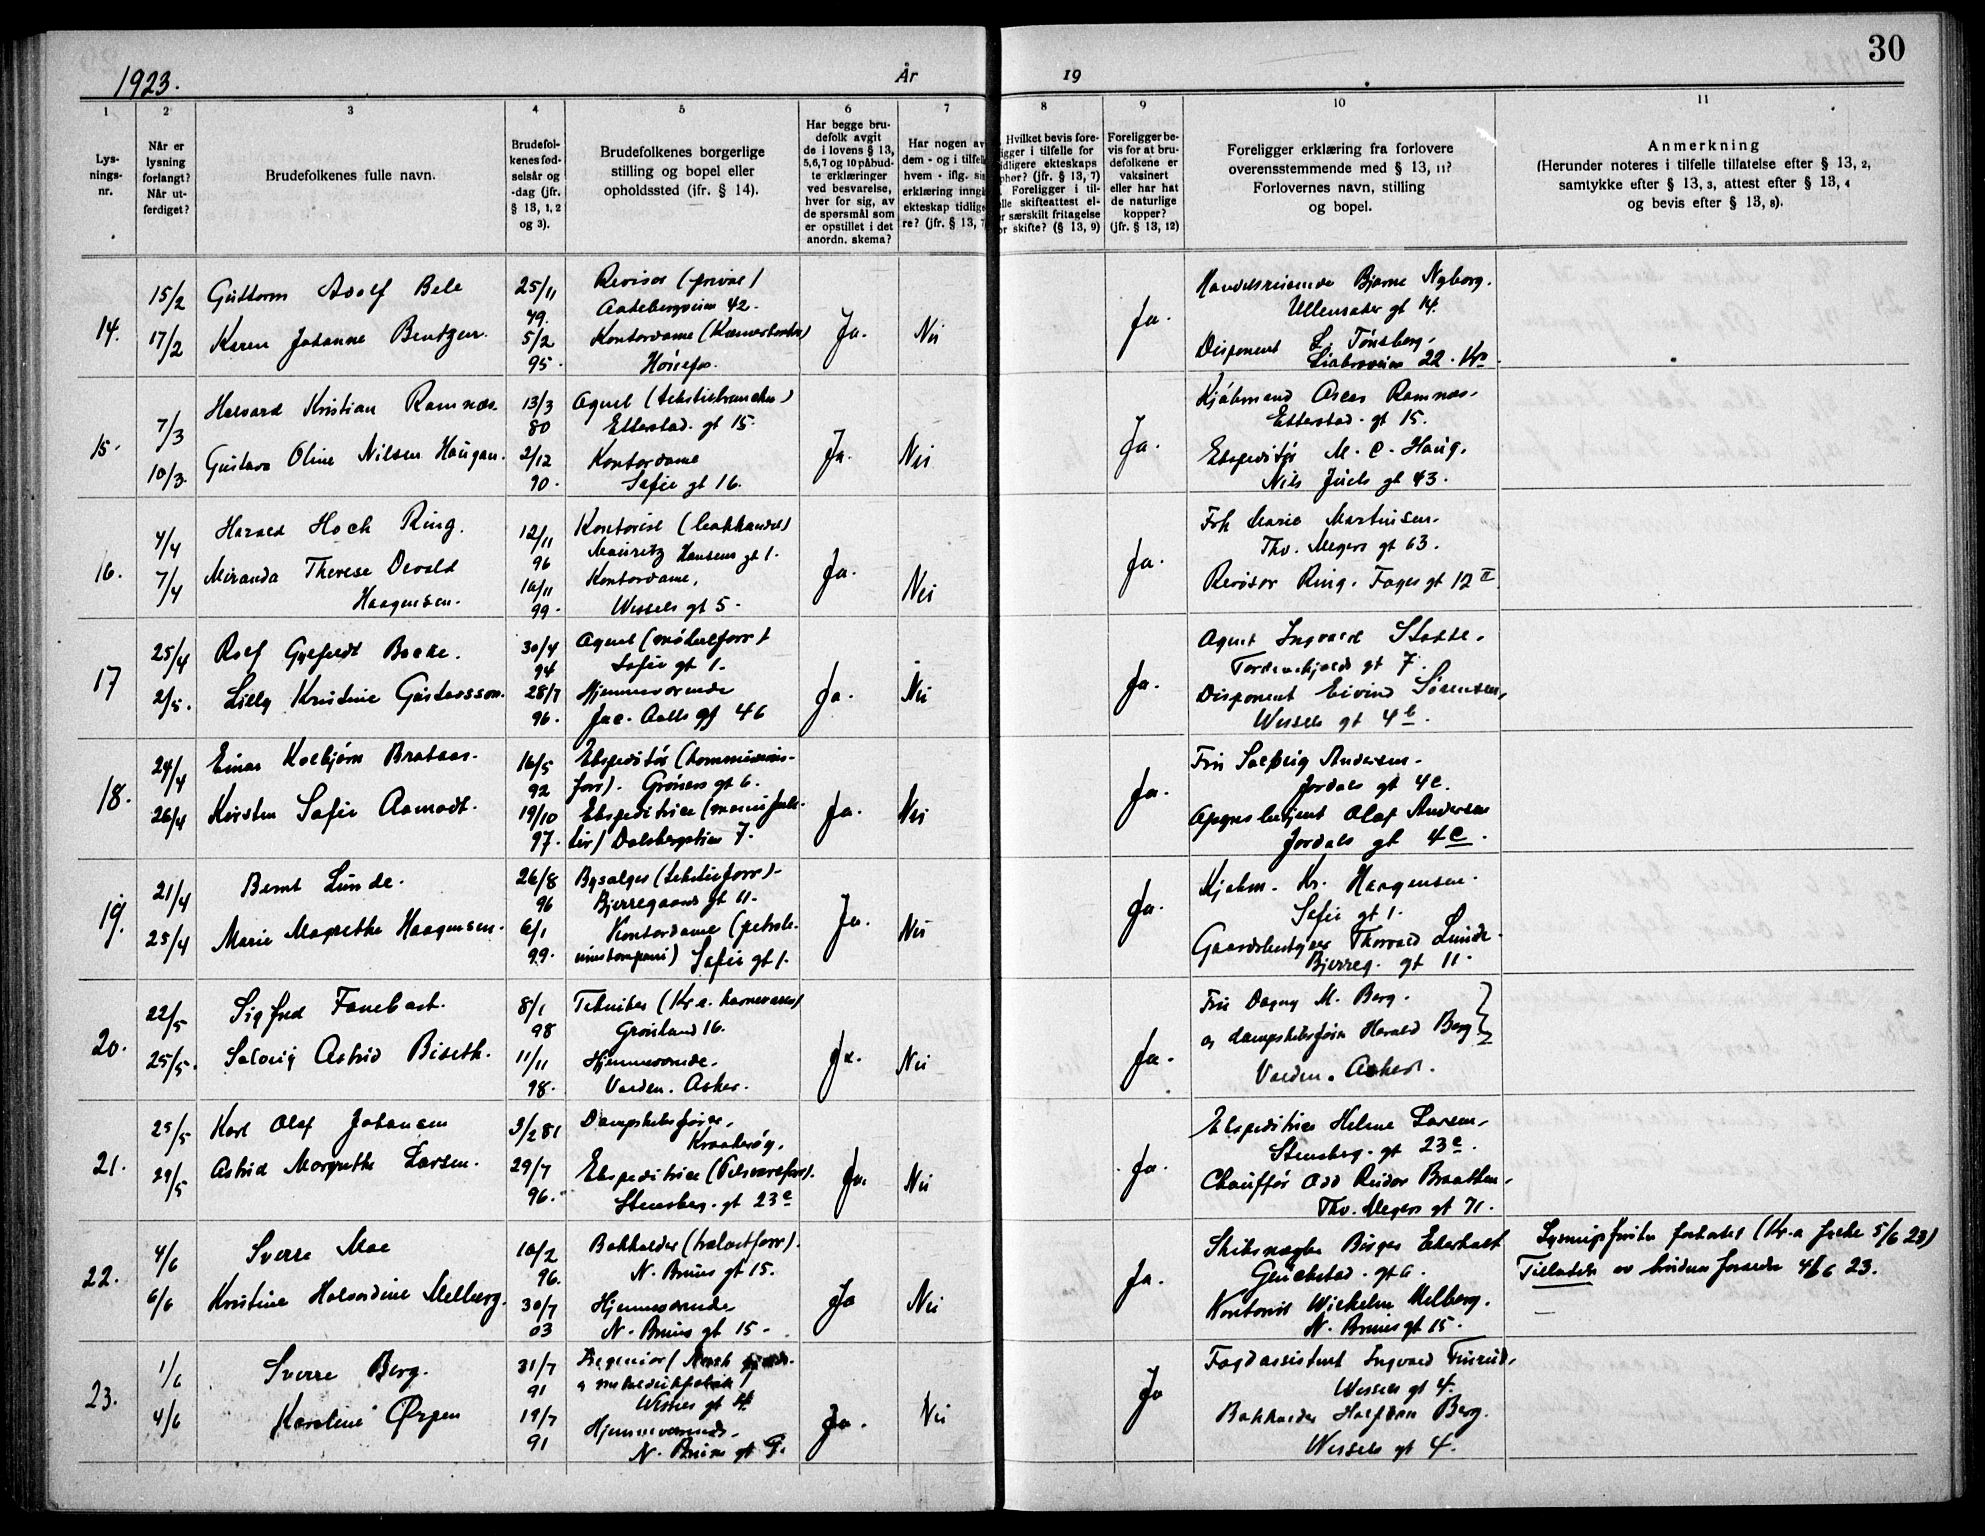 30
1923.
År
19
1
2
3
4
5
6
7
8
9
10
11
Lys-
nings-
nr.
Når er
lysning
forlangt?
Når ut-
ferdiget?
Brudefolkenes fulle navn.
Brudefol-
kenes fød-
selsår og
-dag (jfr.
§ 13, 1, 2
og 3).
Brudefolkenes borgerlige
stilling og bopel eller
opholdssted (jfr. § 14).
Har begge bru-
defolk avgit
de i lovens § 13,
5,6,7 og 10 påbud-
te erklæringer
ved besvarelse,
hver for sig, av
de spørsmål som
er opstillet i det
anordn. skema?
Har nogen av
dem - og i tilfelle
hvem - iflg. sin
erklæring inngå
ekteskap tidlige
re? (jfr. § 13, 7
Hvilket bevis fore-
igger i tilfelle for
idligere ekteskaps
phør? (jfr. § 13, 7)
Foreligger i til-
lle skifteattest el-
r særskilt fritagelse
or skifte? (§ 13, 9)
Foreligger be-
vis for at bru-
defolkene er
vaksinert
eller har hat
de naturlige
kopper?
(jfr. § 13, 12)
Foreligger erklæring fra forlovere
overensstemmende med § 13, 11?
Forlovernes navn, stilling
og bopel.
Anmerkning
(Herunder noteres i tilfelle tillatelse efter § 13, 2,
samtykke efter § 13, 3, attest efter § 13, 4
og bevis efter § 13, 8).
14.
15/2
17/2
Guttorm Adolf Bele
Karen Johanne Bentzen.
25/11
5/2
95.
Revisor (privat)
42.
Kontordame
Hønefos.
Ja.
Nei
Ja.
Handelsreisende Bjarne Nyborg.
Ullensaker gt 14.
Disponent L. Tönsberg.
Liabroveien 22. Kra
15.
7/3
10/3
Halvard Kristian Ramnæs.
Gustava Oline Nilsen Haugan.
13/3
80
2/12
90.
Agent (tekstilbranchen)
Etterstad. gt 15.
Kontordame
Sofie gt 16.
Ja.
Nei
Ja.
Kjøbmand Oscar Ramnæs.
Etterstad. gt 15.
Ekspeditör M. C. Haug.
Nils Juels gt 43.
16.
4/4
7/4
Harald Hoch Ring.
Miranda Therese Devold
Haagensen.
12/11
96
10/11
99.
Kontorist
Mauritz Hansens gt 1.
Kontordame,
Wessels gt 5.
Ja.
Nei
Ja.
Frk Marie Martinsen.
Thv. Meyers gt 63.
Revisor Ring. Fages gt 12 II
17
25/4
2/5.
Rolf Gylfeldt Bocke.
Lilly Kristine Gustavsson.
30/4
94
28/7
96.
Agent (møbelforr)
Sofie gt 1.
Hjemmeværende
Jac. Aalls gt 46
Ja.
Nei
Ja.
Agent Ingvald Stokke.
Tordenskjolds gt 7.
Disponent Eivind Sörensen,
Wessels gt 4 b.
18.
24/4
26/4
Einar Kolbjörn Brataas.
Kirsten Sofie Aamodt.
16/5
92
19/10
97.
Ekspeditör (kommissions-
forr). Gröners gt 6.
Ekspeditrice (manufak-
tur) Dalsbergstien 7.
Ja.
Nei
Ja.
Fru Solveig Andersen.
Jordals gt 4c.
Olaf Andersen
Jordals gt 4c.
19.
21/4
25/4
Bernt Lunde.
Marie Magrethe Haagensen.
26/8
96
6/1
99.
Bysælger (tekstilforr).
Bjerregaards gt 11.
Kontordame (petrole-
umskompani) Sofie gt 1.
Ja.
Nei
Ja.
Kjøbm. Kr. Haagensen.
Sofie gt 1.
Gaardsbestyrer Thorvald Lunde.
Bjerreg. gt 11.
20.
22/5
25/5.
Sigfred Fanebast.
Solveig Astrid Biseth.
8/1
98
11/11
98.
Tekniker
Grönland 16.
Hjemmeværende.
Varden. Asker.
Ja.
Nei
Ja.
Fru Dagny M. Berg.
og dampskibsförer Harald Berg
Varden. Asker.
21.
25/5
29/5
Karl Olaf Johansen
Astrid Margrethe Larsen.
3/2 81
29/7
96.
Dampskibsförer,
Kraakeröy,
Ekspeditrice (Pelsvareforr).
Stensberg. gt 23 c
Ja.
Nei
Ja.
Ekspeditrice Helene Larsen,
Stensberg. gt 23 c.
Chauffør Odd Reidar Braathen,
Thv. Meyers gt 71.
22.
4/6
6/6
Sverre Moe
Kristine Halvordine Melberg.
10/2
96.
30/7
03
Bokholder (trælastforr).
N. Bruns gt 15.
Hjemmeværende
N. Bruns gt 15.
Ja
Nei
Ja.
Birger Ekerholt
Glückstad. gt 6.
Kontorist Wilhelm Melberg.
N. Bruns gt 15.
5/6 23)
23.
23.
1/6
4/6
Sverre Berg.
Karoline Ørpen
31/7
91
19/7
91
Ingeniør
Hjemmeværende.
N. Bruns gt 9.
Ja.
Nei
Ja
Fagdassistent Ingvald Finrud,
Wessels gt 4.
Bokholder Halfdan Berg.
Wessels gt 4.